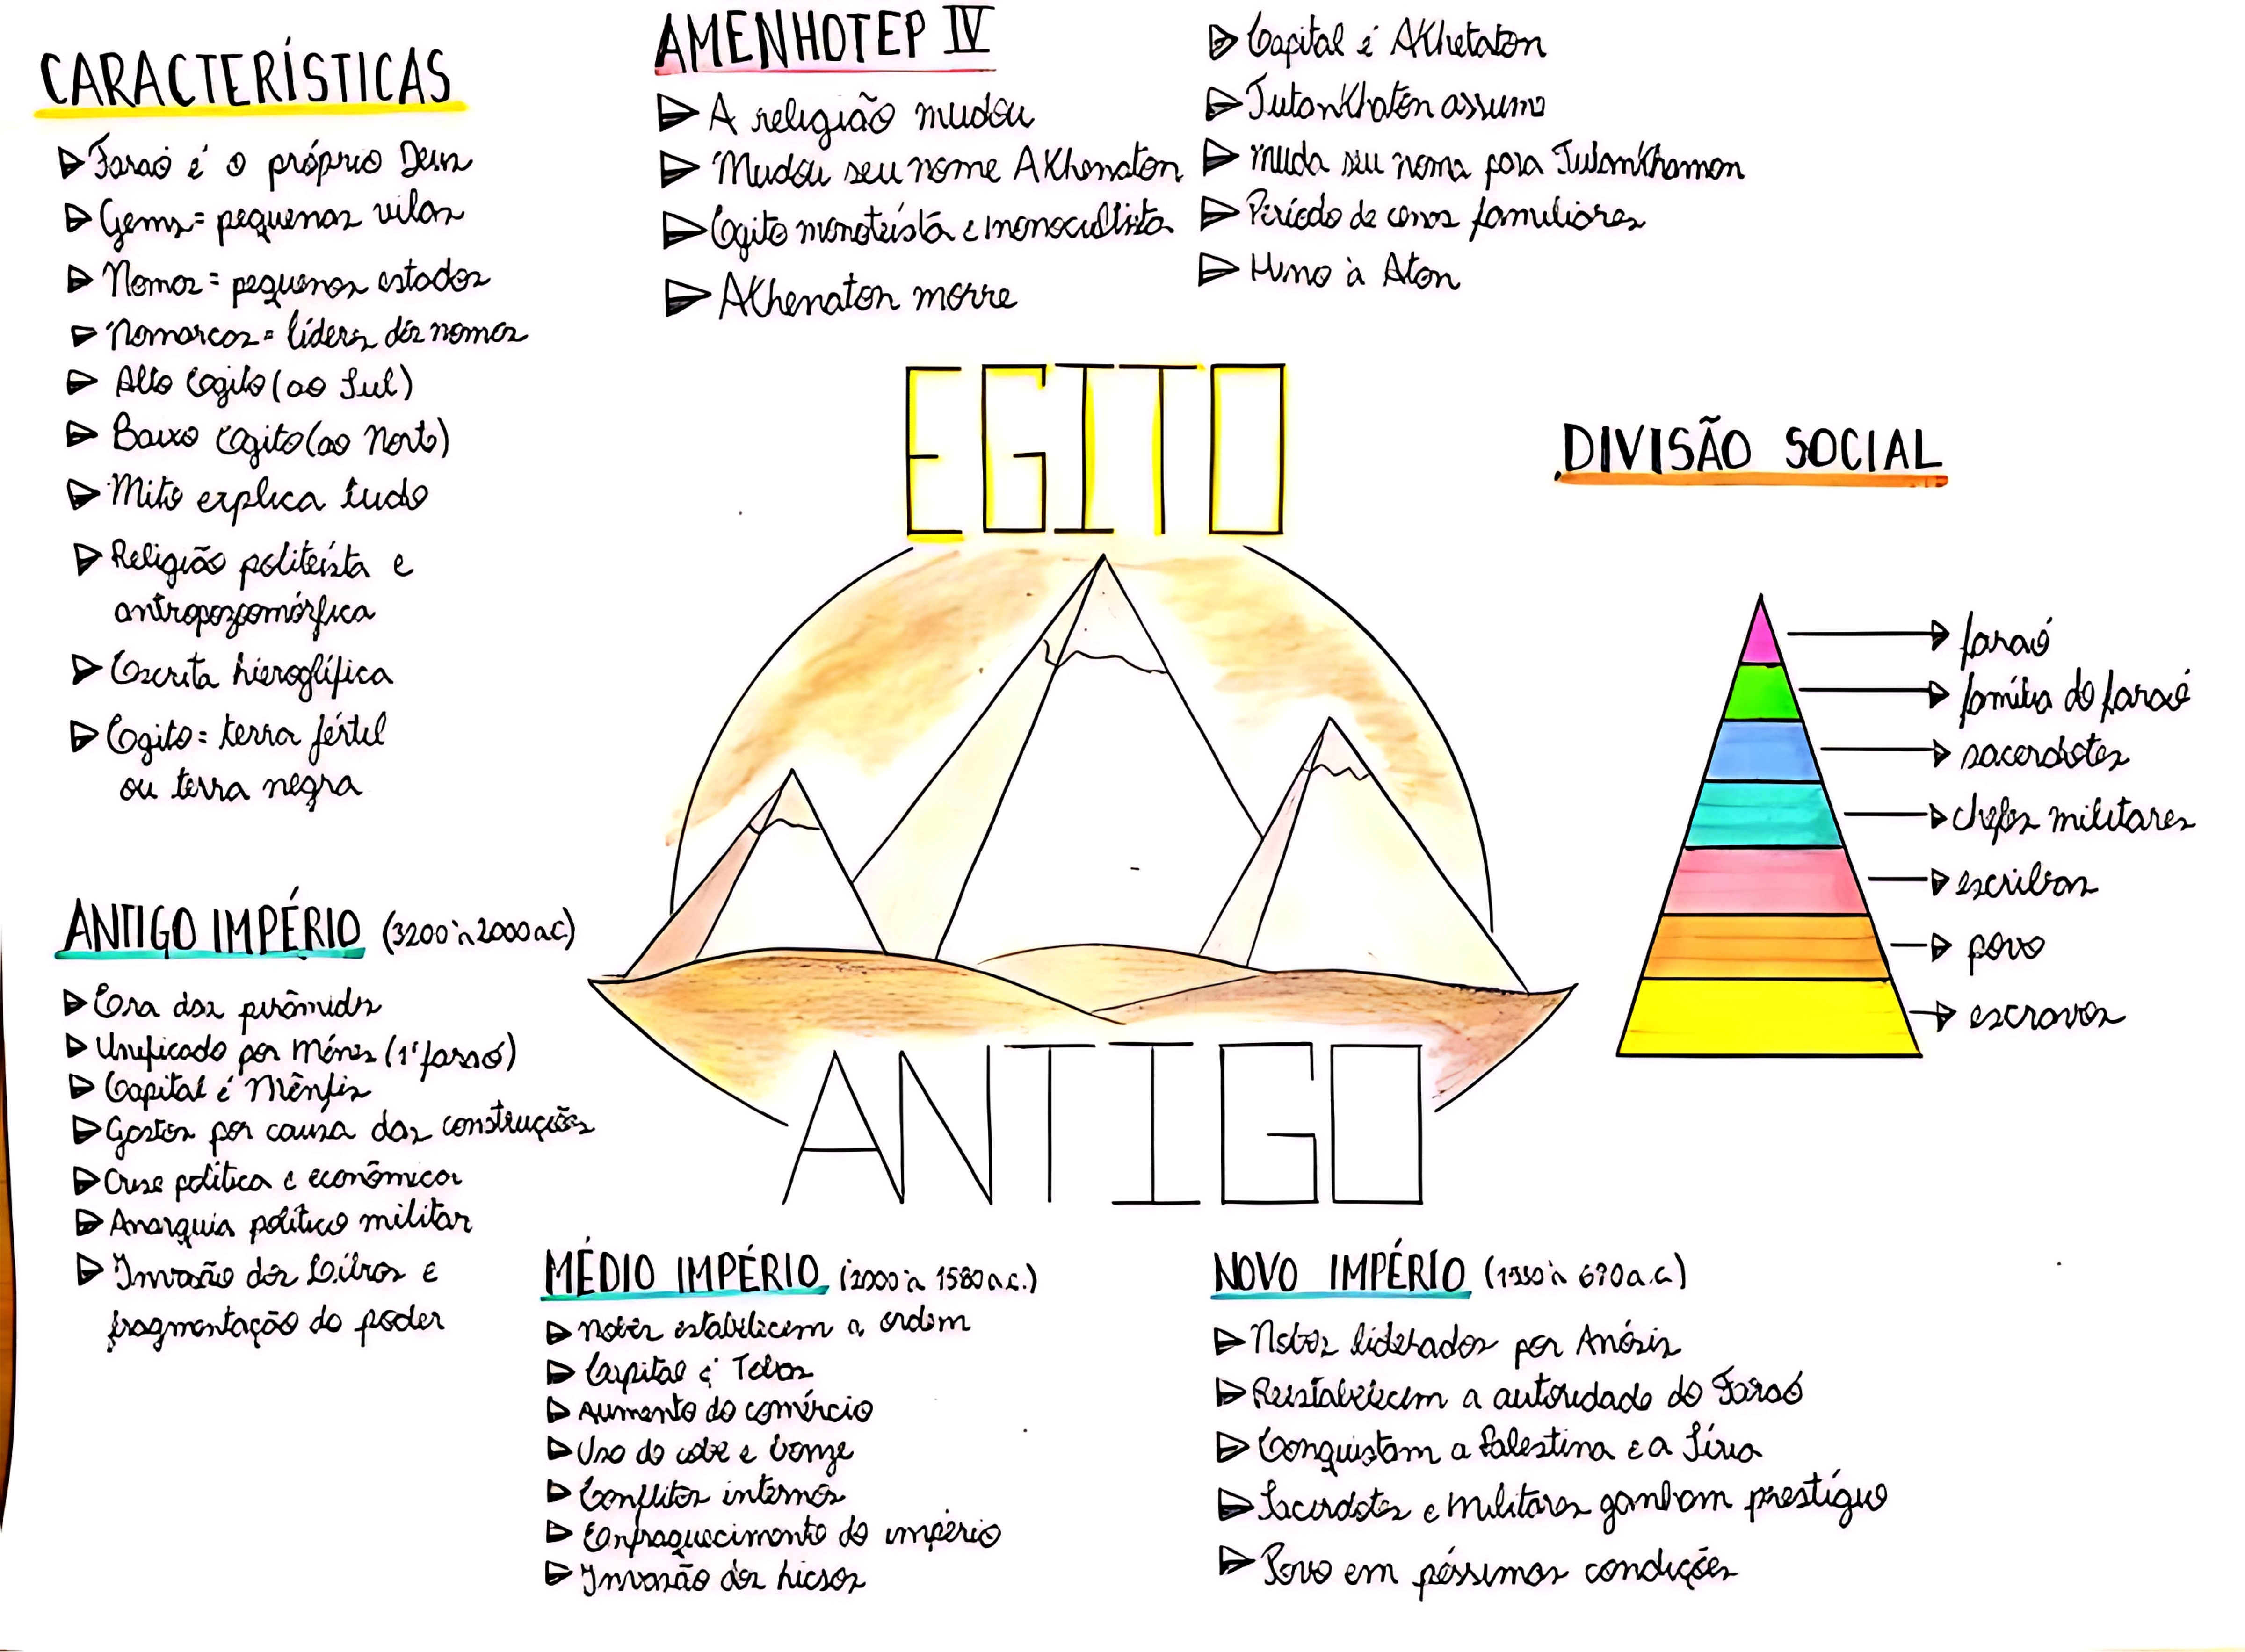 CARACTERÍSTICAS
Faraó é o próprio Deus
Gens = pequenas vilas
Nomos = pequenos estados
Nomarcas = líderes dos nomos
Alto Egito (ao Sul)
Baixo Egito (ao Norte)
Mito explica tudo
Religião politeísta e
antropozoomórfica
Escrita hieroglífica
Egito = terra fértil
ou terra negra
AMENHOTEP IV
A religião mudou
Mudou seu nome AKhenaton
Egito monoteísta e monocultista
AKhenaton morre
Capital é AKhetaton
TutanKhaton assume
muda seu nome para TutanKhamon
Período de cenas familiares
Hino à Aton
EGITO
ANTIGO
DIVISÃO SOCIAL
faraó
família do faraó
sacerdotes
chefes militares
escribas
povo
escravos
ANTIGO IMPÉRIO (3200 à 2000 a.C)
Era das pirâmides
Unificado por Ménes (1º faraó)
Capital é Mênfis
Gastos por causa das construções
Crise política e econômica
Anarquia político militar
Invasão dos e
fragmentação do poder
MÉDIO IMPÉRIO (2000 à 1580 a.C.)
Nobres estabelecem a ordem
Capital é Tebas
Aumento do comércio
Uso do cobre e bronze
Conflitos internos
Enfraquecimento do império
Invasão dos hicsos
NOVO IMPÉRIO (1580 à 670 a.C)
Nobres liderados por Amósis
Reestabelecem a autoridade do Faraó
Conquistam a Palestina e a Síria
Sacerdotes e militares ganham prestígio
Povo em péssimas condições